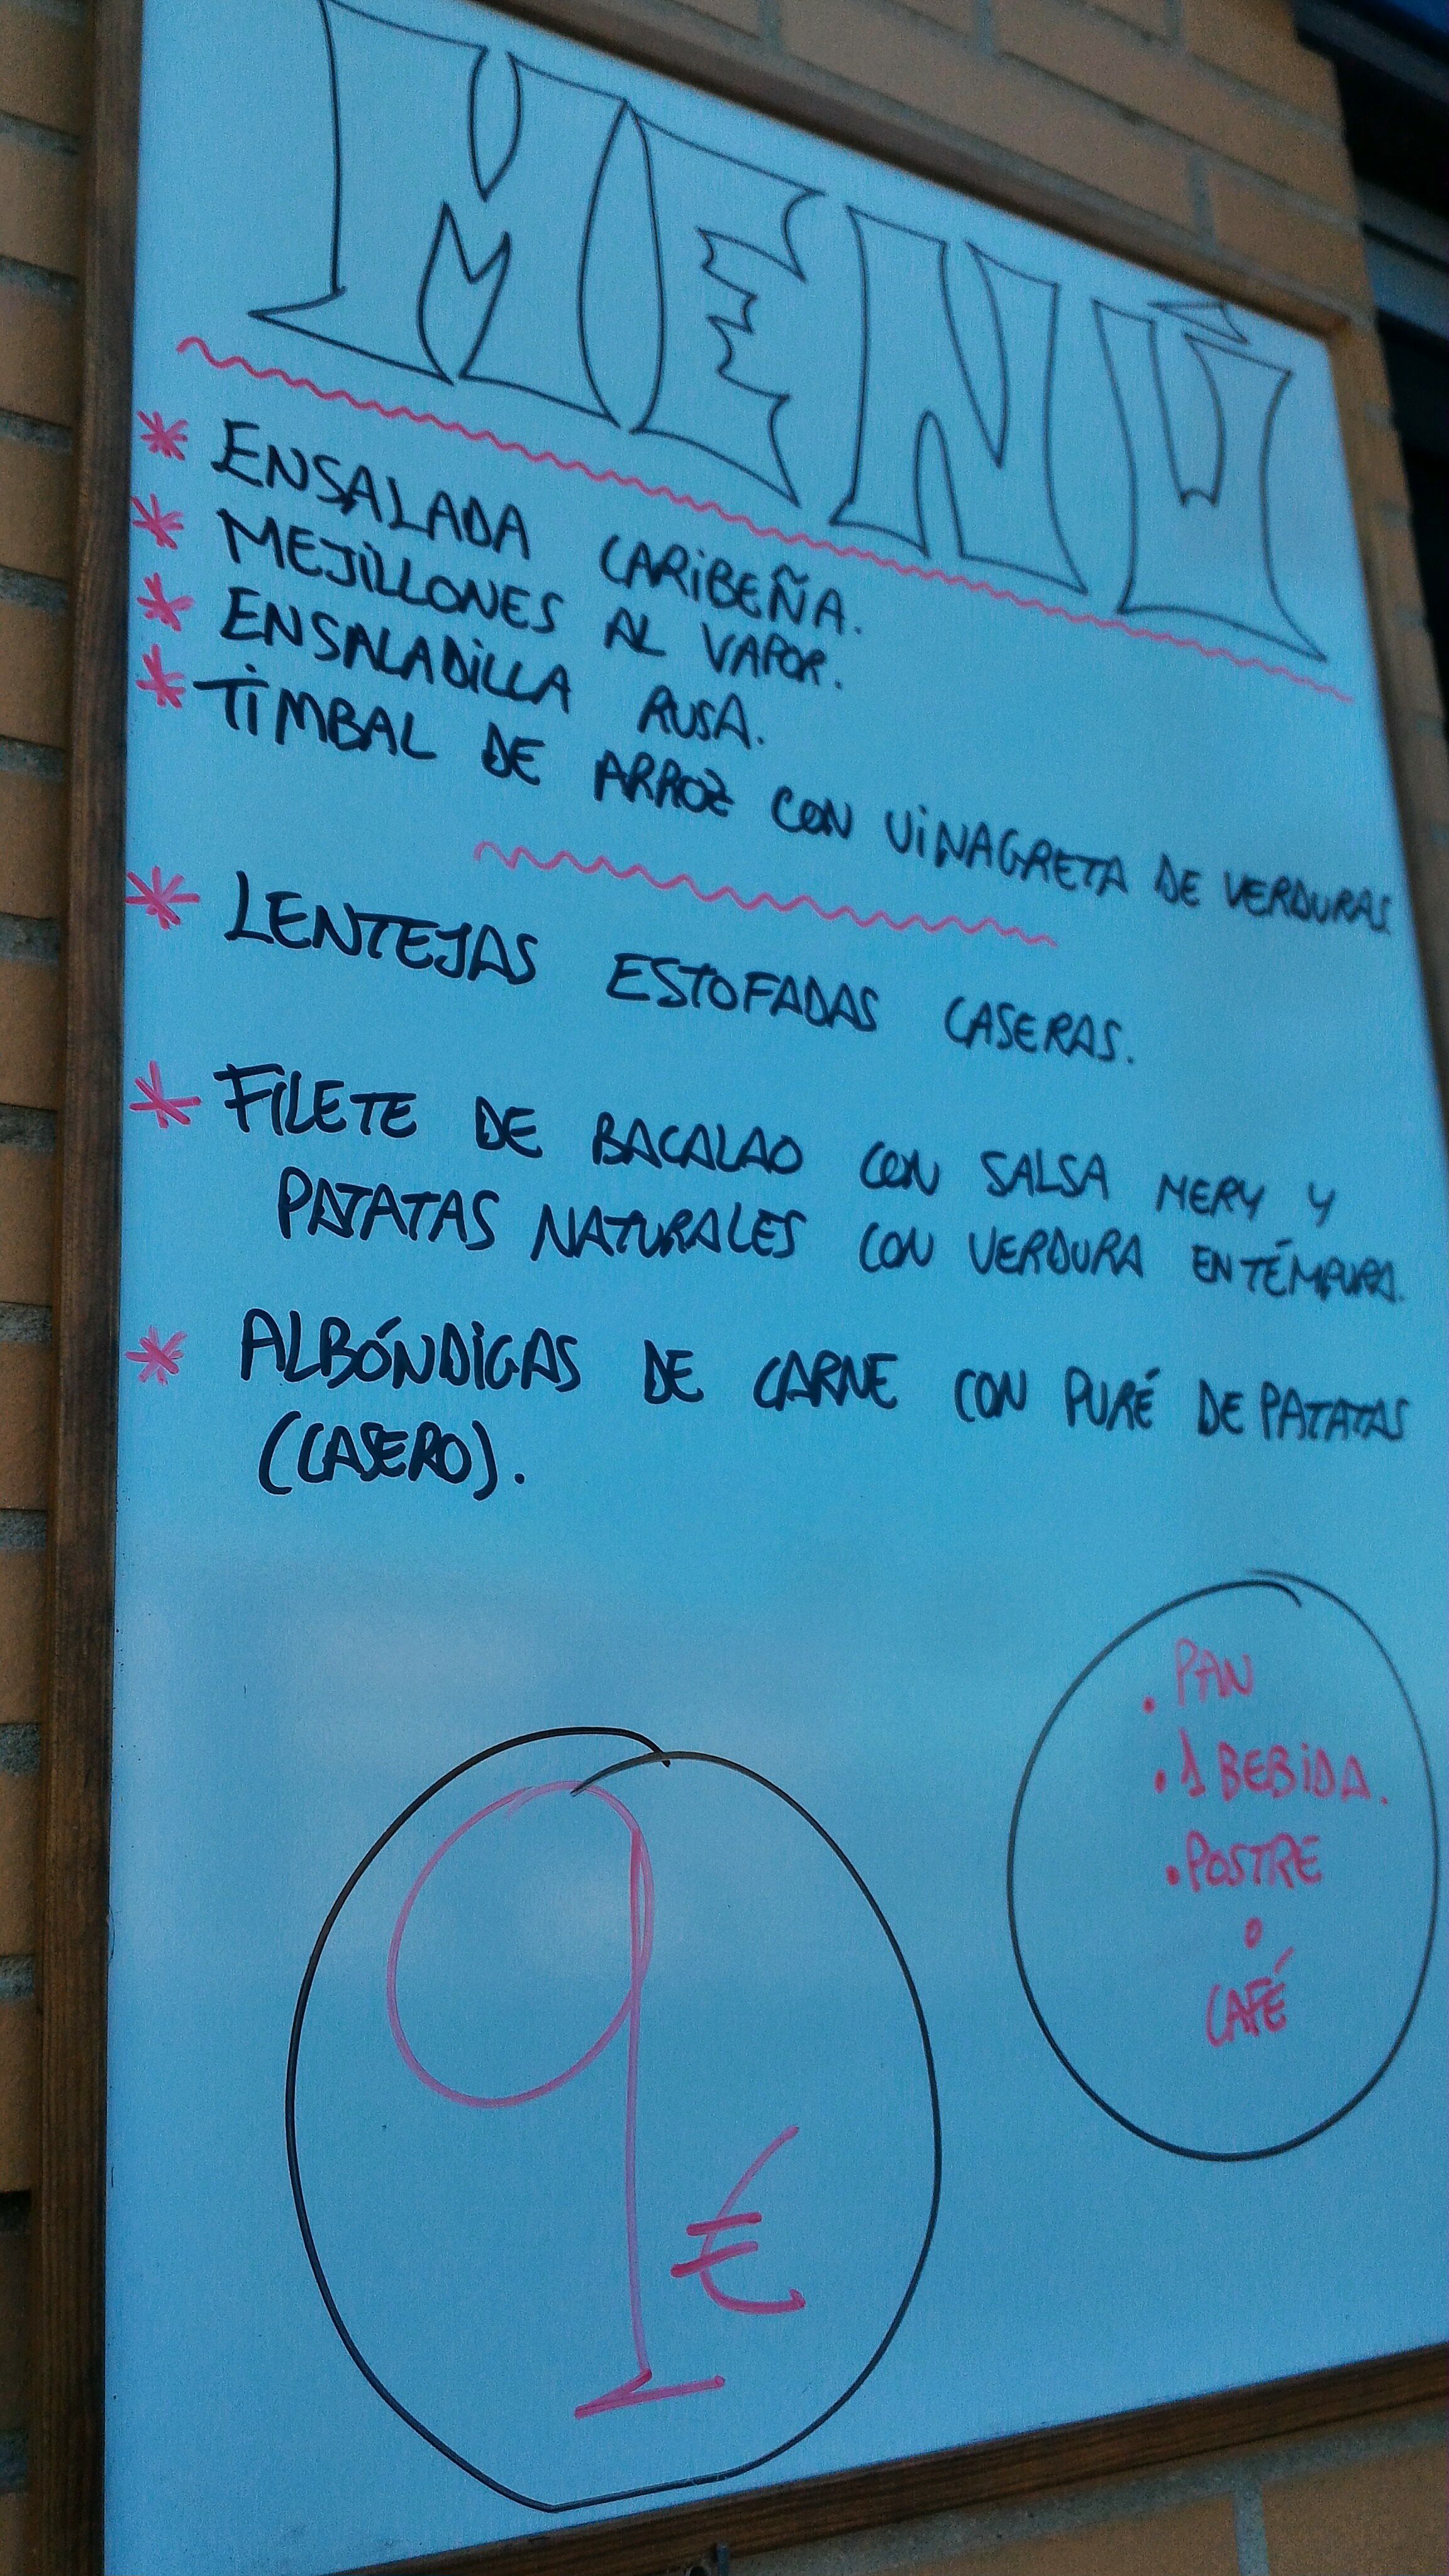 MENÚ
* ENSALADA CARIBEÑA.
* MEJILLONES AL VAPOR.
* ENSALADILLA RUSA.
* TIMBAL DE ARROZ CON VINAGRETA DE VERDURAS
* LENTEJAS ESTOFADAS CASERAS.
* FILETE DE BACALAO CON SALSA MERY Y
PATATAS NATURALES CON VERDURA EN TÉMPURA.
* ALBÓNDIGAS DE CARNE CON PURÉ DE PATATAS
(CASERO).
. PAN
. 1 BEBIDA.
. POSTRE
o
CAFÉ
9 €